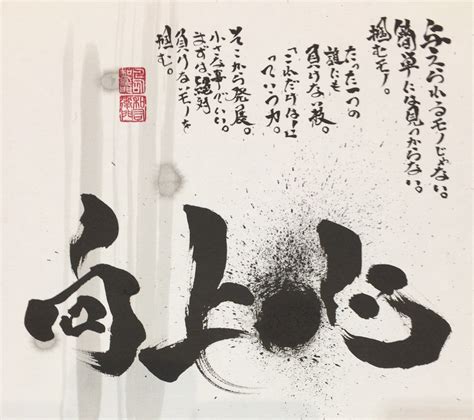 与えられるモノじゃない。
簡単には見つからない。
掴むモノ。
たった一つの
誰にも
負けない技。
「これだけは…」
っていう力。
そこから発展。
小さな事でいい。
まずは絶対
負けないモノを
掴む。
向上心